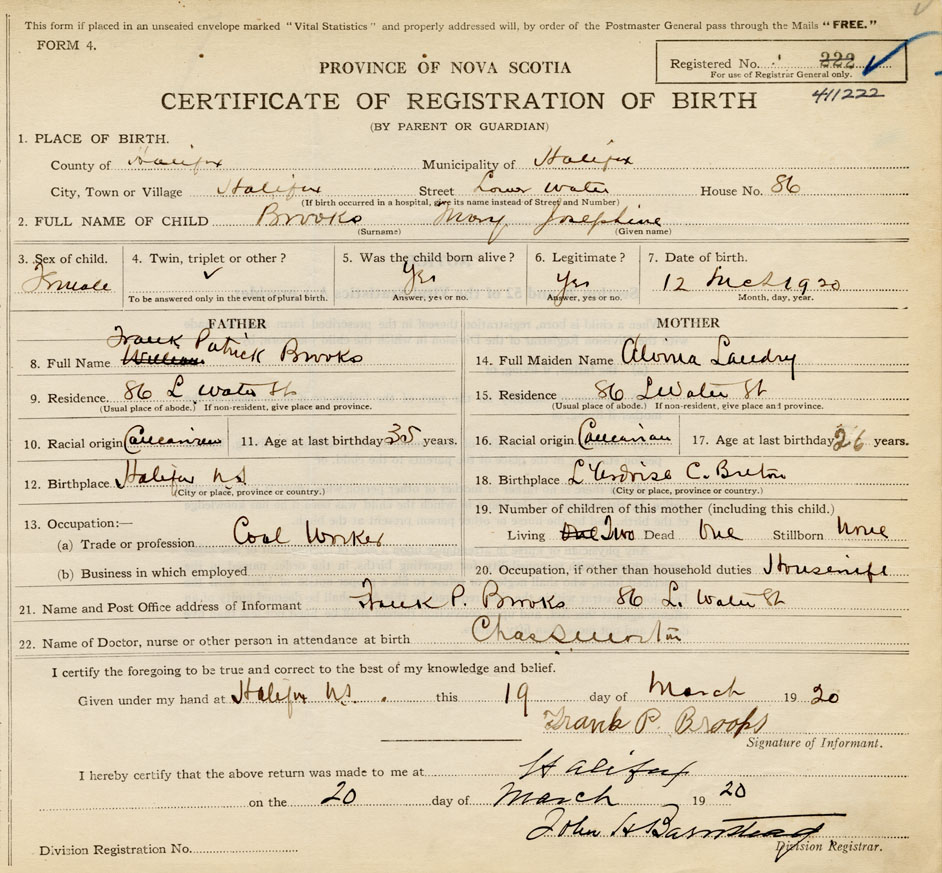 This form if placed in an unsealed envelope marked "Vital Statistics" and properly addressed will, by order of the Postmaster General pass through the Mails "FREE."
FORM 4.
Registered No. 222
For use of Registrar General only.
411222
PROVINCE OF NOVA SCOTIA
CERTIFICATE OF REGISTRATION OF BIRTH
(BY PARENT OR GUARDIAN)
1. PLACE OF BIRTH.
County of Halifax Municipality of Halifax
City, Town or Village Halifax Street Lower Water House No. 86
(If birth occurred in a hospital, give its name instead of Street and Number)
2. FULL NAME OF CHILD Brooks Mary Josephine
(Surname) (Given name)
3. Sex of child. 4. Twin, triplet or other? 5. Was the child born alive? 6. Legitimate? 7. Date of birth.
Female ✓ Yes Yes 12 Mch 1920
To be answered only in the event of plural birth. Answer, yes or no. Answer, yes or no. Month, day, year.
FATHER
Frank Patrick Brooks
8. Full Name William
9. Residence. 86 L Water St
(Usual place of abode.) If non-resident, give place and province.
10. Racial origin Caucasian 11. Age at last birthday 35 years.
12. Birthplace Halifax N.S
(City or place, province or country.)
13. Occupation:—
(a) Trade or profession Coal Worker
(b) Business in which employed
MOTHER
14. Full Maiden Name Alvina Landry
15. Residence 86 L Water St
(Usual place of abode.) If non-resident, give place and province.
16. Racial origin Caucasian 17. Age at last birthday 26 years.
18. Birthplace L'Ardoise C. Breton
(City or place, province or country.)
19. Number of children of this mother (including this child.)
Living One Two Dead One Stillborn None
20. Occupation, if other than household duties Housewife
21. Name and Post Office address of Informant Frank P. Brooks 86 L. Water St
22. Name of Doctor, nurse or other person in attendance at birth
I certify the foregoing to be true and correct to the best of my knowledge and belief.
Given under my hand at Halifax N.S. this 19 day of March 1920
Frank P. Brooks
Signature of Informant.
I hereby certify that the above return was made to me at Halifax
on the 20 day of March 1920
John H Barnstead
Division Registrar.
Division Registration No.